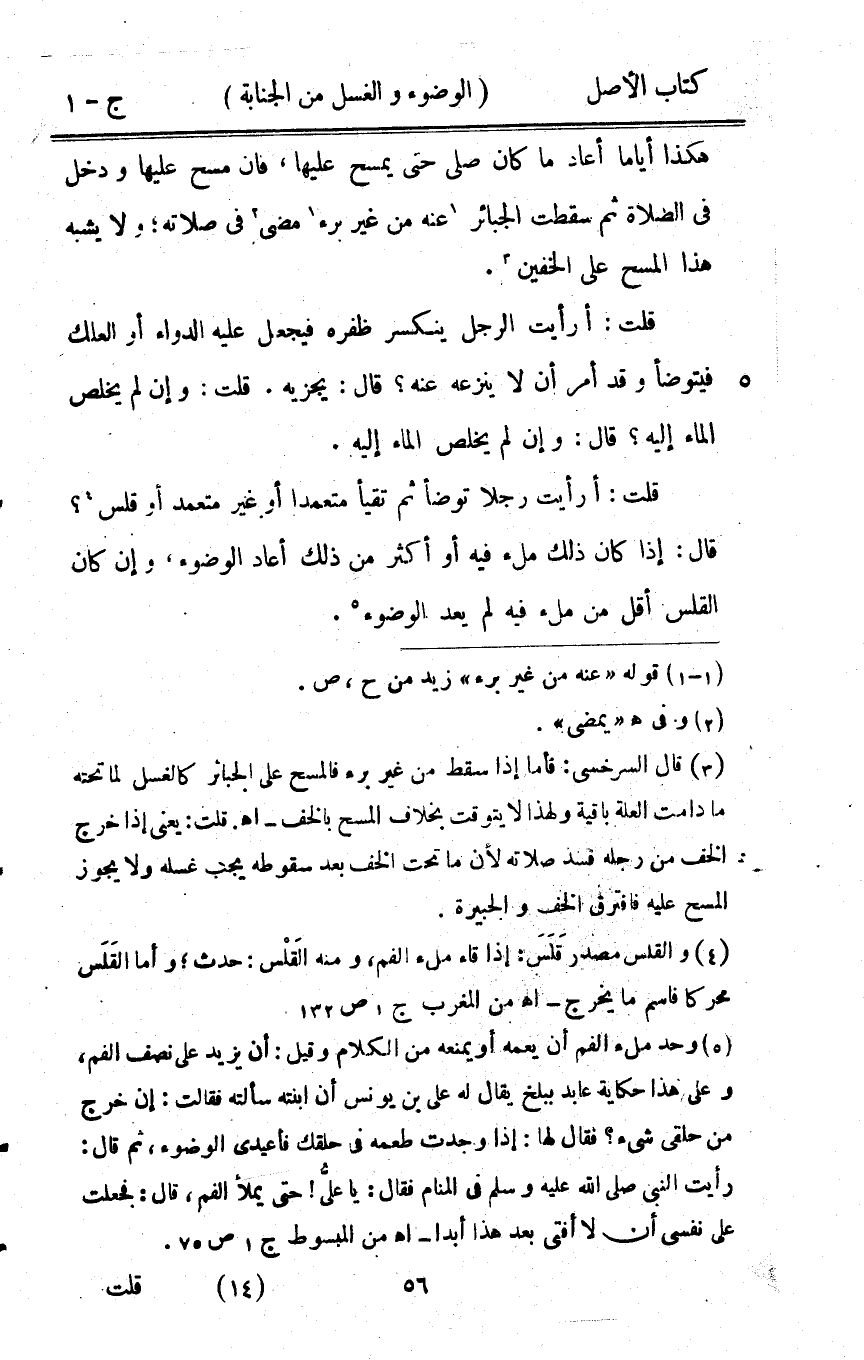 كتاب الأصل ( الوضوء و الغسل من الجنابة ) ج - ١
هكذا أياما أعاد ما كان صلى حتى يمسح عليها ، فان مسح عليها و دخل
فى الصلاة ثم سقطت الجبائر ١عنه من غير برء١ مضى٢ فى صلاته ؛ و لا يشبه
هذا المسح على الخفين ٣ .
قلت : أ رأيت الرجل ينكسر ظفره فيجعل عليه الدواء أو العلك
٥ فيتوضأ و قد أمر أن لا ينزعه عنه ؟ قال : يجزيه . قلت : و إن لم يخلص
الماء إليه ؟ قال : و إن لم يخلص الماء إليه .
قلت : أ رأيت رجلا توضأ ثم تقيأ متعمدا أو غير متعمد أو قلس ٤ ؟
قال : إذا كان ذلك ملء فيه أو أكثر من ذلك أعاد الوضوء ، و إن كان
القلس أقل من ملء فيه لم يعد الوضوء ٥ .
(١-١) قوله «عنه من غير برء» زيد من ح ، ص .
(٢) و فى ه «يمضى» .
(٣) قال السرخسى : فأما إذا سقط من غير برء فالمسح على الجبائر كالغسل لما تحته
ما دامت العلة باقية ولهذا لا يتوقت بخلاف المسح بالخف ــ اه. قلت : يعنى إذا خرج
الخف من رجله فسد صلاته لأن ما تحت الخف بعد سقوطه يجب غسله ولا يجوز
المسح عليه فافترق الخف و الجبيرة .
(٤) و القلس مصدر قَلَسَ : إذا قاء ملء الفم، و منه القَلْس : حدث ؛ و أما القَلَس
محركا فاسم ما يخرج ــ اه من المغرب ج ١ ص ١٣٢
(٥) وحد ملء الفم أن يعمه أو يمنعه من الكلام وقيل : أن يزيد على نصف الفم،
و على هذا حكاية عابد ببلخ يقال له على بن يونس أن ابنته سألته فقالت : إن خرج
من حلقى شىء ؟ فقال لها : إذا وجدت طعمه فى حلقك فأعيدى الوضوء ، ثم قال :
رأيت النبى صلى الله عليه و سلم فى المنام فقال : يا علىُّ ! حتى يملأ الفم ، قال : فجعلت
على نفسى أن لا أفتى بعد هذا أبدا ــ اه من المبسوط ج ١ ص ٧٥ .
٥٦ (١٤) قلت